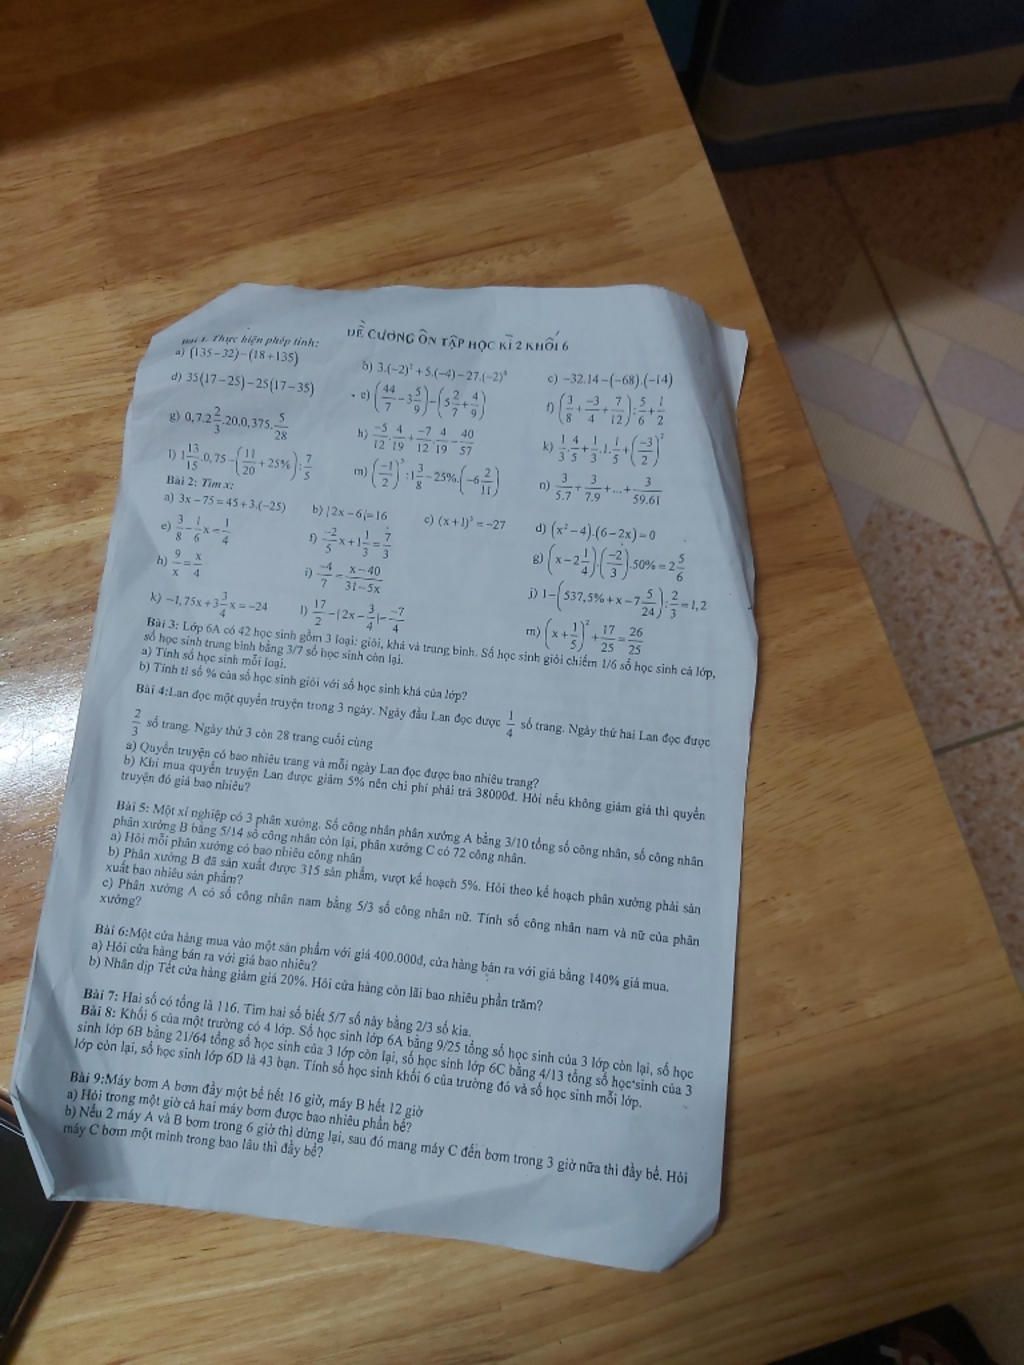 ĐỀ CƯƠNG ÔN TẬP HỌC KÌ 2 KHỐI 6
Bài 1. Thực hiện phép tính:
a) (135−32)−(18+135) b) 3.(−2)² + 5.(−4) − 27.(−2)⁰ c) −32.14−(−68).(−14)
d) 35(17−25)−25(17−35) e) (44/7 − 3 5/9) − (5 2/7 + 4/9) f) (3/8 + −3/4 + 7/12) : 5/6 + 1/2
g) 0,7.2 2/3.20.0,375. 5/28 h) −5/12 . 4/19 + −7/12 . 4/19 − 40/57 k) 1/3 . 4/5 + 1/3 . 1 . 1/5 + (−3/2)²
l) 1 13/15 . 0,75 − (11/20 + 25%) : 7/5 m) (−1/2)² : 1 3/8 − 25%.(−6 2/11) n) 3/5.7 + 3/7.9 + ... + 3/59.61
Bài 2: Tìm x:
a) 3x − 75 = 45 + 3.(−25) b) |2x − 6| = 16 c) (x+1)³ = −27 d) (x² − 4).(6 − 2x) = 0
e) 3/8 − 1/6 x = 1/4 f) −2/5 x + 1 1/3 = 7/3 g) (x − 2 1/4).(−2/3).50% = 2 5/6
h) 9/x = x/4 i) −4/7 = x−40/31−5x j) 1 − (537,5% + x − 7 5/24) : 2/3 = 1,2
k) −1,75x + 3 3/4 x = −24 l) 17/2 − |2x − 3/4| = −7/4 m) (x + 1/5)² + 17/25 = 26/25
Bài 3: Lớp 6A có 42 học sinh gồm 3 loại: giỏi, khá và trung bình. Số học sinh giỏi chiếm 1/6 số học sinh cả lớp,
số học sinh trung bình bằng 3/7 số học sinh còn lại.
a) Tính số học sinh mỗi loại.
b) Tính tỉ số % của số học sinh giỏi với số học sinh khá của lớp?
Bài 4:Lan đọc một quyển truyện trong 3 ngày. Ngày đầu Lan đọc được 1/4 số trang. Ngày thứ hai Lan đọc được
2/3 số trang. Ngày thứ 3 còn 28 trang cuối cùng
a) Quyển truyện có bao nhiêu trang và mỗi ngày Lan đọc được bao nhiêu trang?
b) Khi mua quyển truyện Lan được giảm 5% nên chi phí phải trả 38000đ. Hỏi nếu không giảm giá thì quyển
truyện đó giá bao nhiêu?
Bài 5: Một xí nghiệp có 3 phân xưởng. Số công nhân phân xưởng A bằng 3/10 tổng số công nhân, số công nhân
phân xưởng B bằng 5/14 số công nhân còn lại, phân xưởng C có 72 công nhân.
a) Hỏi mỗi phân xưởng có bao nhiêu công nhân
b) Phân xưởng B đã sản xuất được 315 sản phẩm, vượt kế hoạch 5%. Hỏi theo kế hoạch phân xưởng phải sản
xuất bao nhiêu sản phẩm?
c) Phân xưởng A có số công nhân nam bằng 5/3 số công nhân nữ. Tính số công nhân nam và nữ của phân
xưởng?
Bài 6:Một cửa hàng mua vào một sản phẩm với giá 400.000đ, cửa hàng bán ra với giá bằng 140% giá mua.
a) Hỏi cửa hàng bán ra với giá bao nhiêu?
b) Nhân dịp Tết cửa hàng giảm giá 20%. Hỏi cửa hàng còn lãi bao nhiêu phần trăm?
Bài 7: Hai số có tổng là 116. Tìm hai số biết 5/7 số này bằng 2/3 số kia.
Bài 8: Khối 6 của một trường có 4 lớp. Số học sinh lớp 6A bằng 9/25 tổng số học sinh của 3 lớp còn lại, số học
sinh lớp 6B bằng 21/64 tổng số học sinh của 3 lớp còn lại, số học sinh lớp 6C bằng 4/13 tổng số học sinh của 3
lớp còn lại, số học sinh lớp 6D là 43 bạn. Tính số học sinh khối 6 của trường đó và số học sinh mỗi lớp.
Bài 9:Máy bơm A bơm đầy một bể hết 16 giờ, máy B hết 12 giờ
a) Hỏi trong một giờ cả hai máy bơm được bao nhiêu phần bể?
b) Nếu 2 máy A và B bơm trong 6 giờ thì dừng lại, sau đó mang máy C đến bơm trong 3 giờ nữa thì đầy bể. Hỏi
máy C bơm một mình trong bao lâu thì đầy bể?